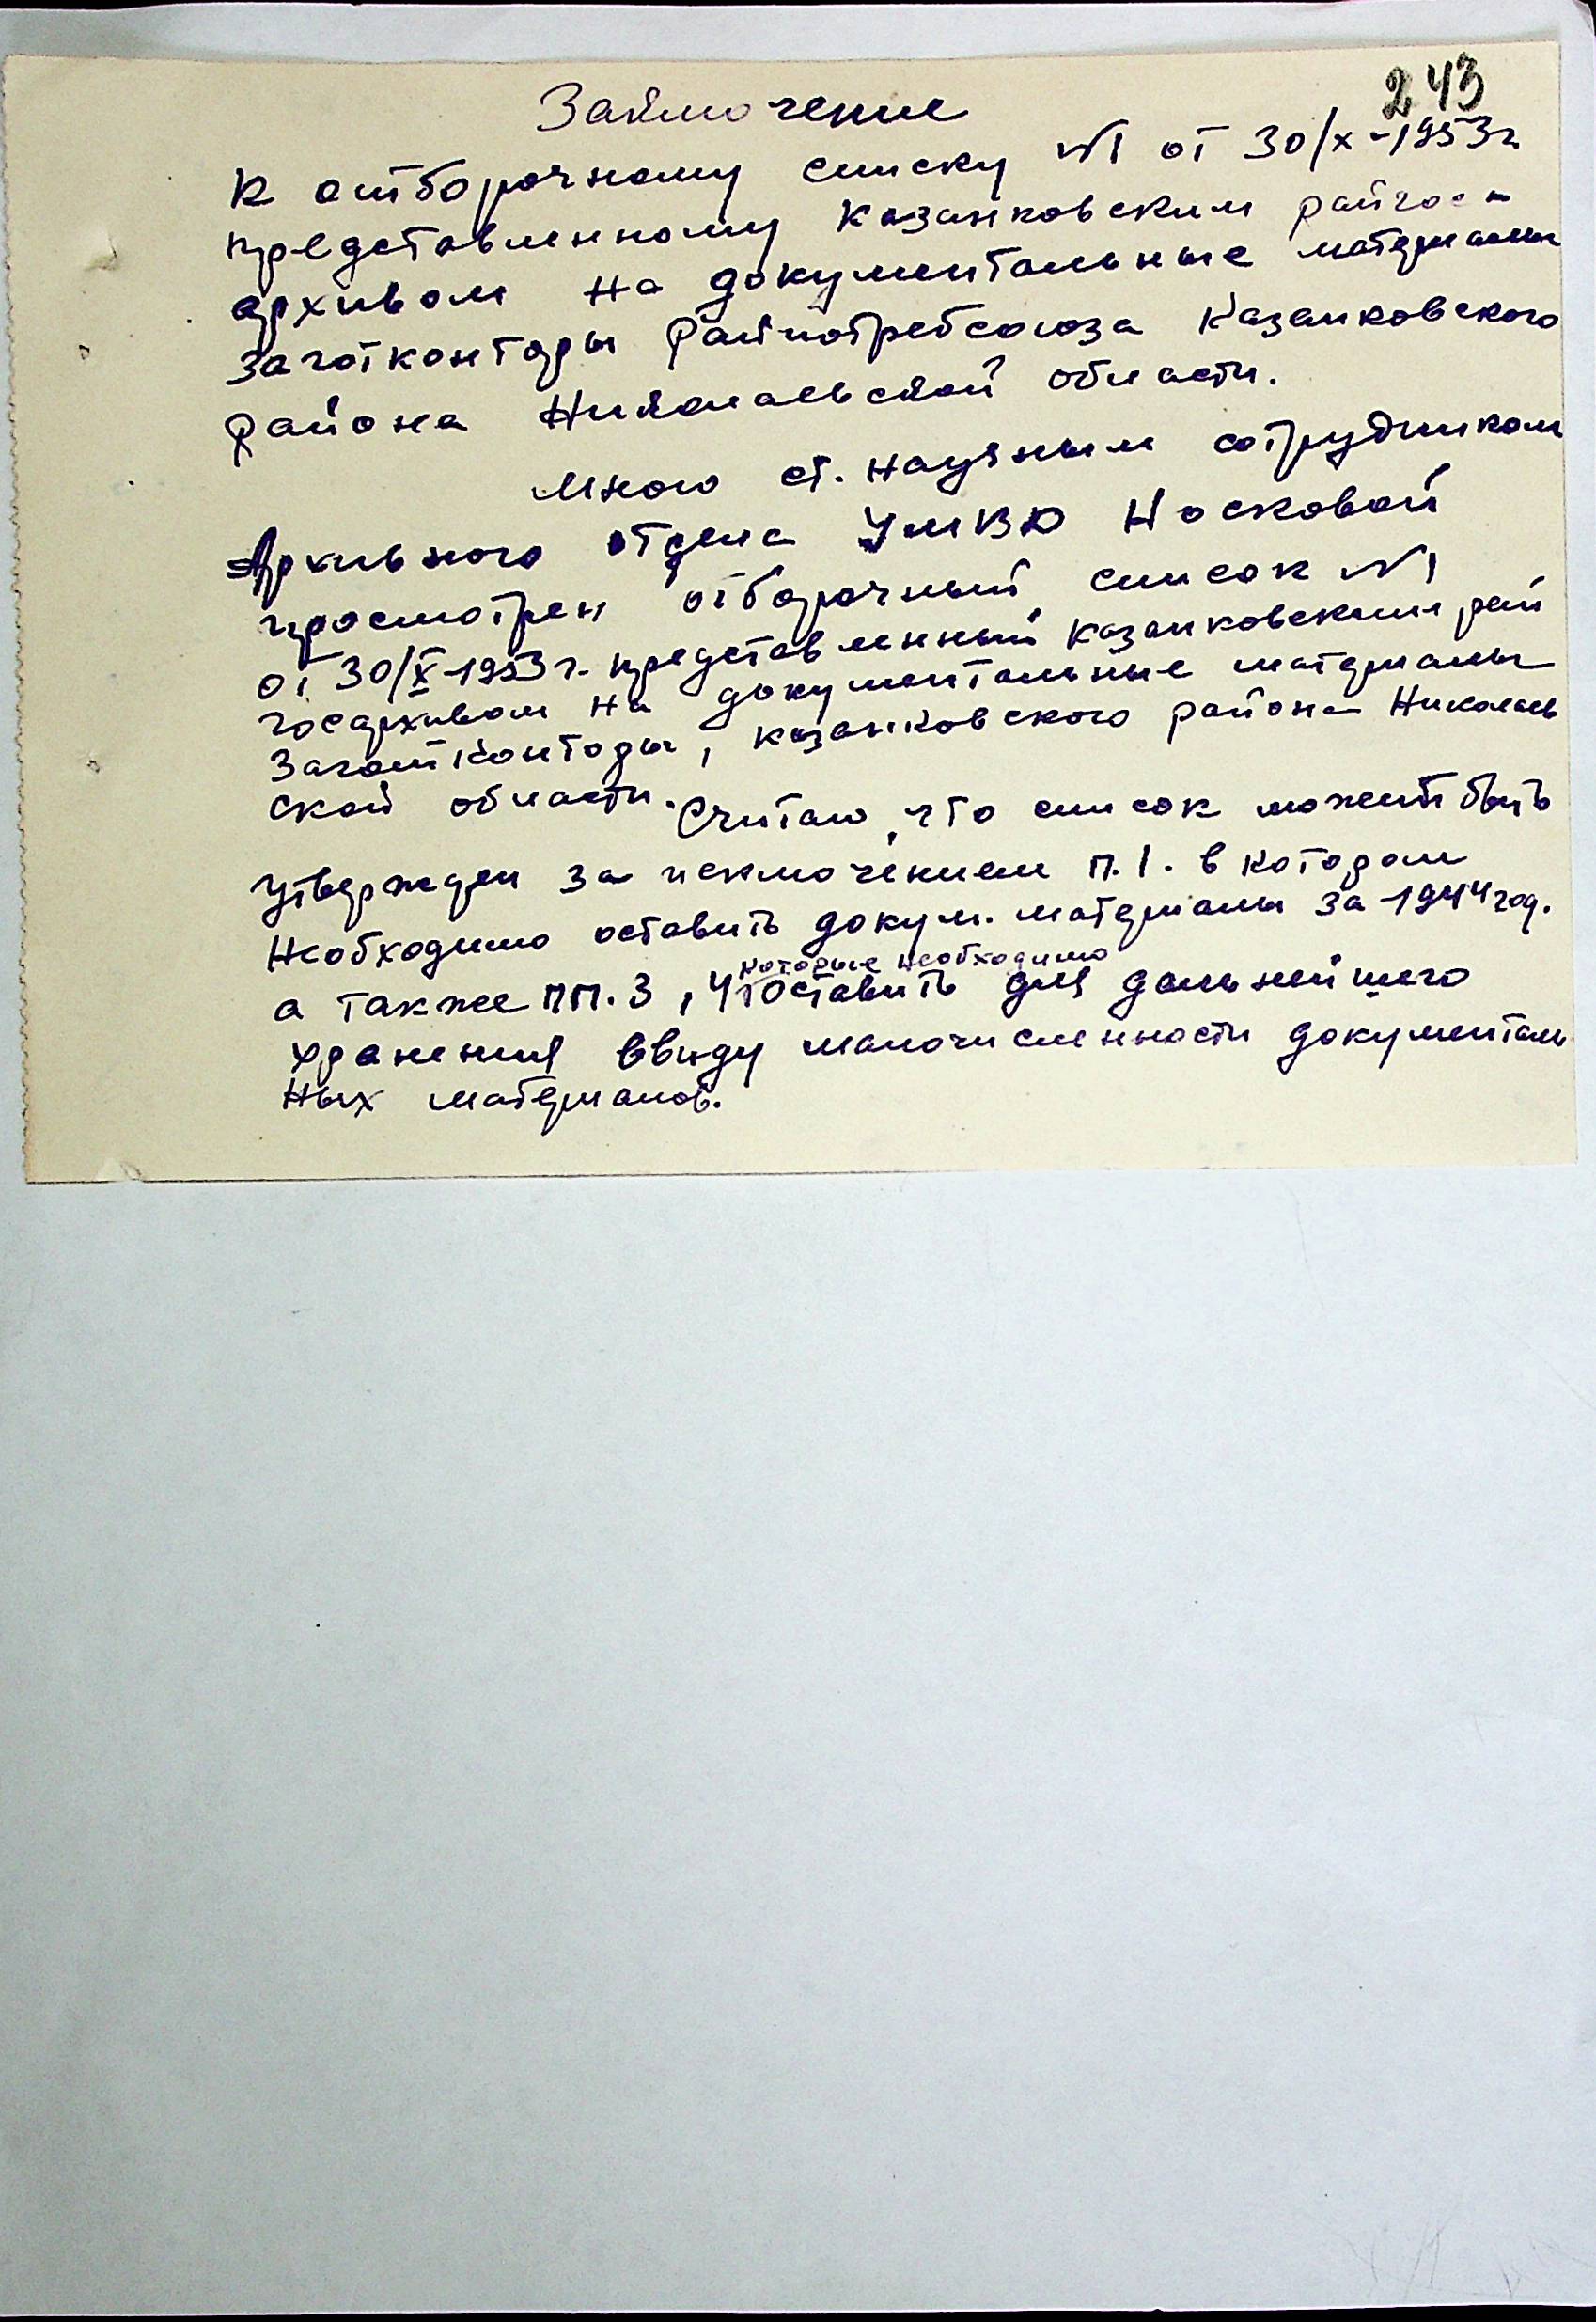 243
Заключение
К отборочному списку №1 от 30/х-1953г
представленному Казанковским райгос-
архивом на документальные материалы
заготконторы Райпотребсоюза Казанковского
района Николаевской области.
Мною ст. научным сотрудником
Архивного отдела УМВД Носковой
просмотрен отборочный список №1
от 30/X-1953г. представленный Казанковским рай
госархивом на документальные материалы
Заготконторы, Казанковского района Николаев
ской области. Считаю, что список может быть
утвержден за исключением п.1. в котором
необходимо оставить докум. материалы за 1944 год.
которые необходимо
а также пп. 3, 4 оставить для дальнейшего
хранения ввиду малочисленности документаль
ных материалов.